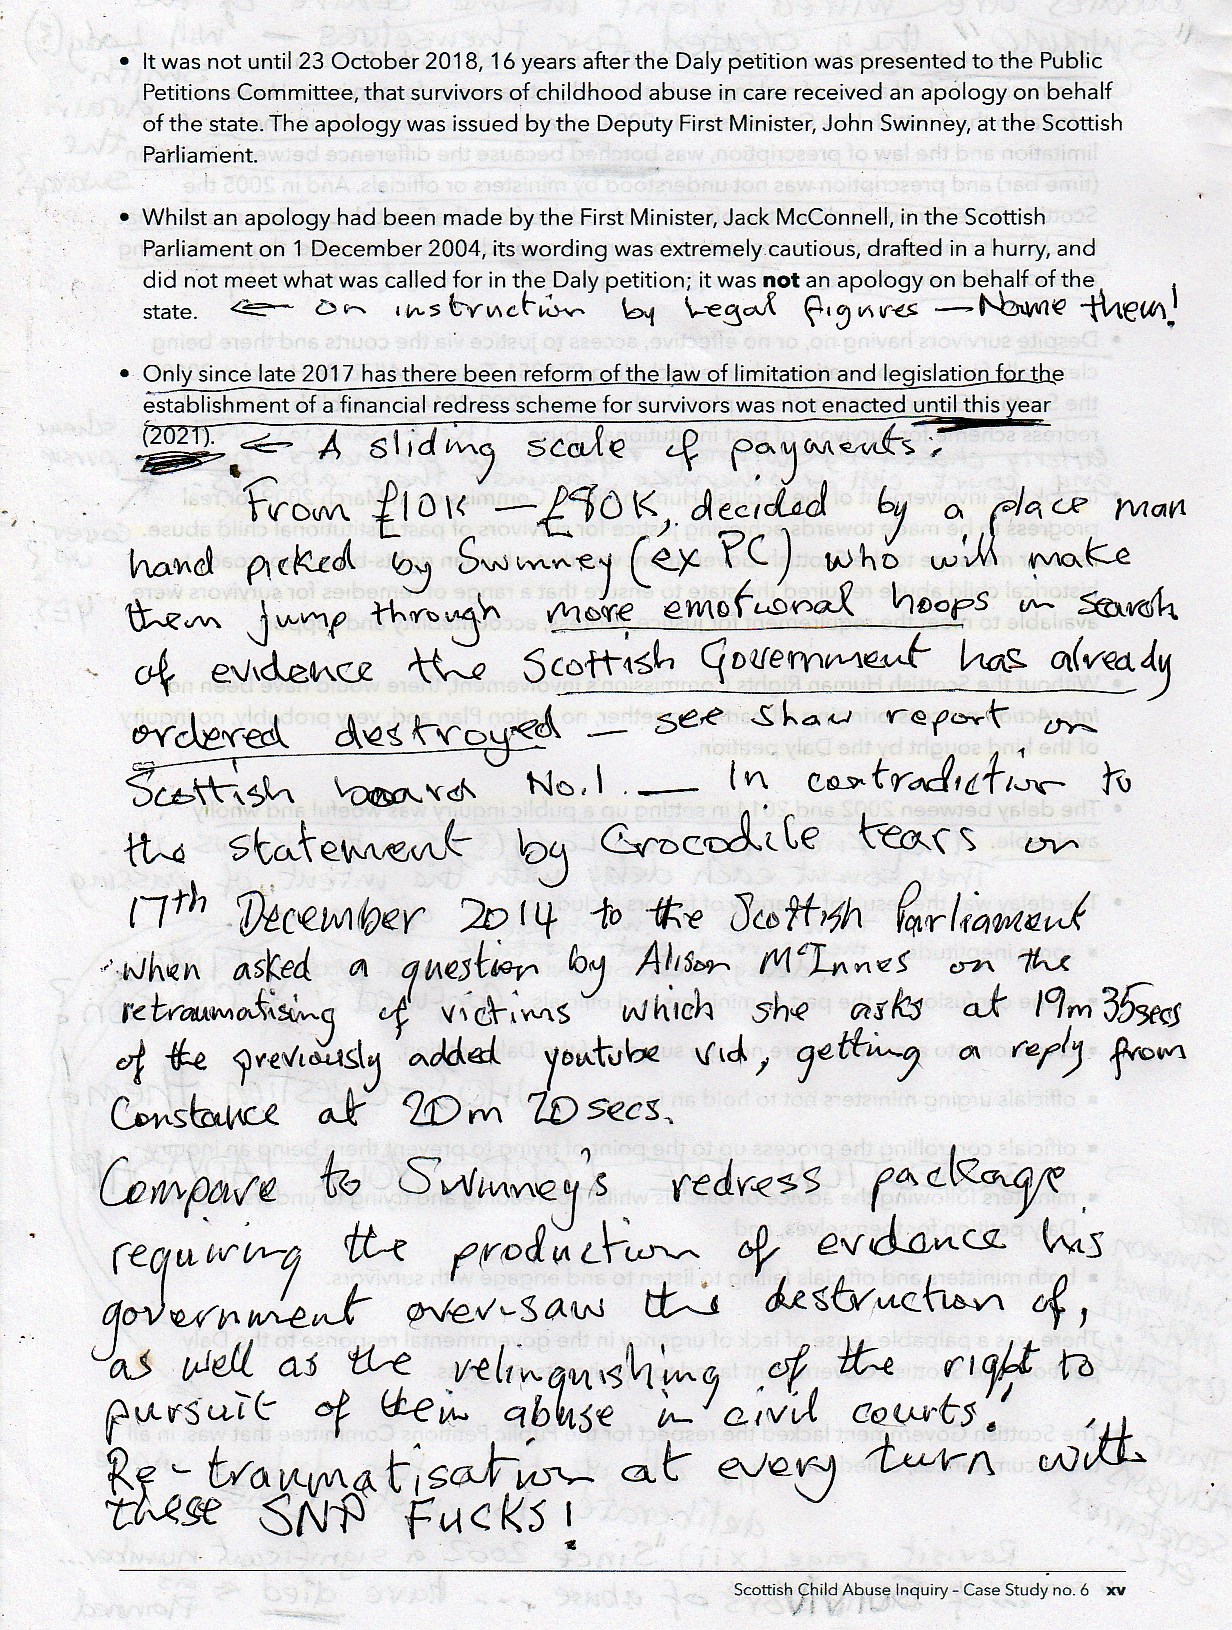 • It was not until 23 October 2018, 16 years after the Daly petition was presented to the Public
Petitions Committee, that survivors of childhood abuse in care received an apology on behalf
of the state. The apology was issued by the Deputy First Minister, John Swinney, at the Scottish
Parliament.
• Whilst an apology had been made by the First Minister, Jack McConnell, in the Scottish
Parliament on 1 December 2004, its wording was extremely cautious, drafted in a hurry, and
did not meet what was called for in the Daly petition; it was not an apology on behalf of the
state. ← on instruction by Legal figures — Name them!
• Only since late 2017 has there been reform of the law of limitation and legislation for the
establishment of a financial redress scheme for survivors was not enacted until this year
(2021). ← A sliding scale of payments:
From £10K — £80K, decided by a place man
hand picked by Swinney (ex PC) who will make
them jump through more emotional hoops in search
of evidence the Scottish Government has already
ordered destroyed — see Shaw report on
Scottish board No.1. — In contradiction to
the statement by Crocodile tears on
17th December 2014 to the Scottish Parliament
when asked a question by Alison McInnes on the
retraumatising of victims which she asks at 19m 35secs
of the previously added youtube vid, getting a reply from
Constance at 20m 20secs.
Compare to Swinney's redress package
requiring the production of evidence his
government over-saw the destruction of,
as well as the relinquishing of the right to
pursuit of their abuse in civil courts!
Re-traumatisation at every turn with
these SNP FUCKS!
Scottish Child Abuse Inquiry – Case Study no. 6 xv